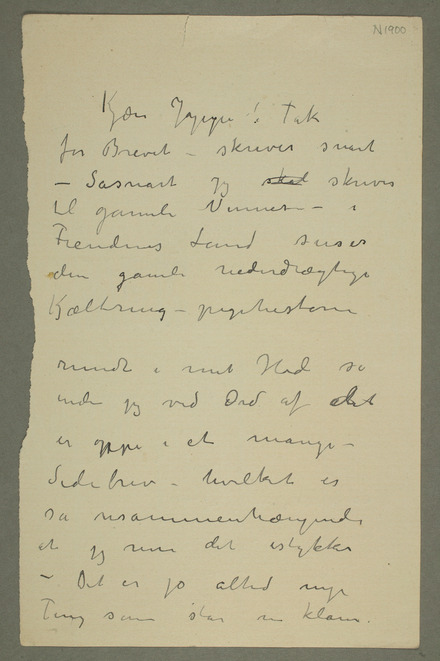 N 1900
Kjære Jappe! Tak
for Brevet – skriver snart
– Såsnart jeg skal skriver
til gamle Venner – i
Fiendnes Land suser
den gamle nederdrægtige
Kjæltring – pigehistorie
rundt i mit Hod så
inden jeg ved Ord af det
er oppe i et mange-
Siders brev – hvilket er
så usammenhængende
at jeg river det istykker
– Det er jo altid nye
Ting som står klare.